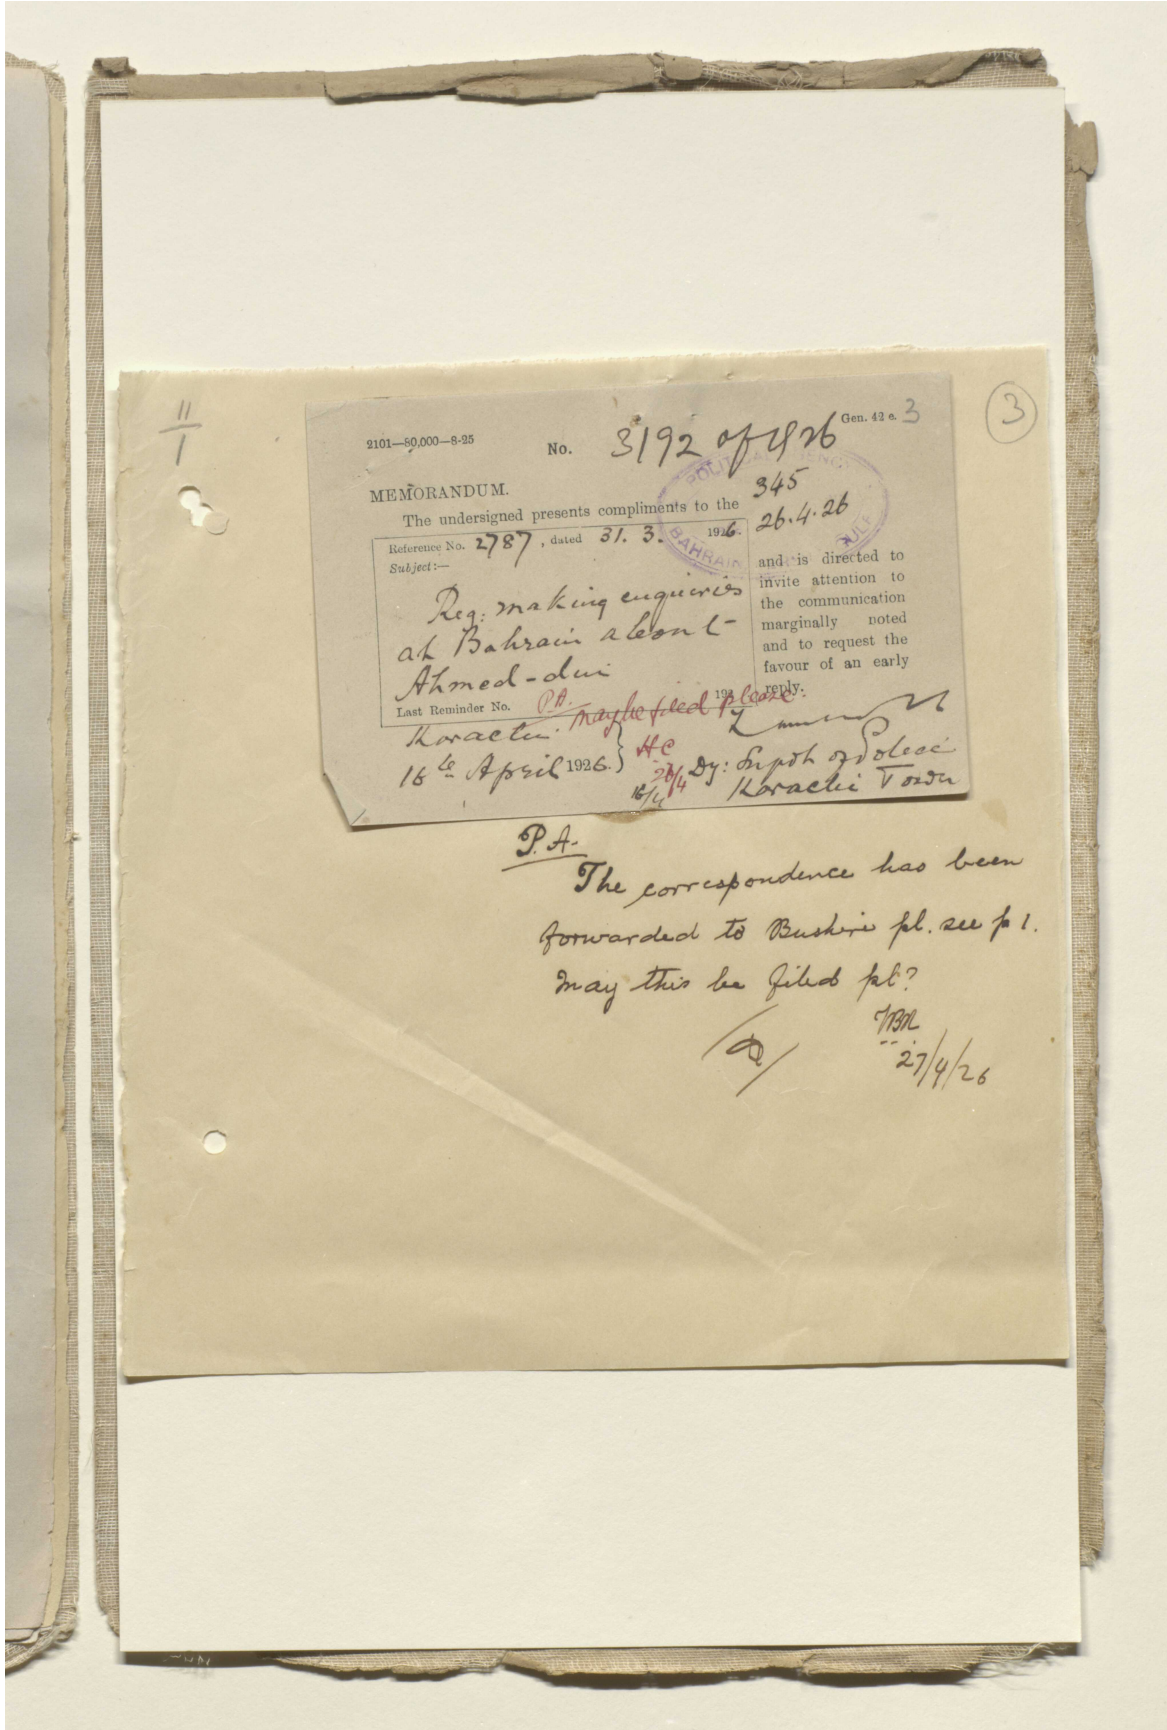 11
1
3
Gen. 42 e. 3
2101—80,000—8-25
No. 3192 of 1926
POLITICAL AGENCY
BAHRAIN GULF
345
26.4.26
MEMORANDUM.
The undersigned presents compliments to the
Reference No. 2787, dated 31. 3. 1926.
Subject:—
Reg: making enquiries
at Bahrain about
Ahmed-din
Last Reminder No. 192
and is directed to
invite attention to
the communication
marginally noted
and to request the
favour of an early
reply.
P.A.
may be filed please
HC
Karachi
16th April 1926.
Dy: Supdt of Police
Karachi Town
P.A.
The correspondence has been
forwarded to Bushire pl. see p 1.
May this be filed pl?
27/4/26